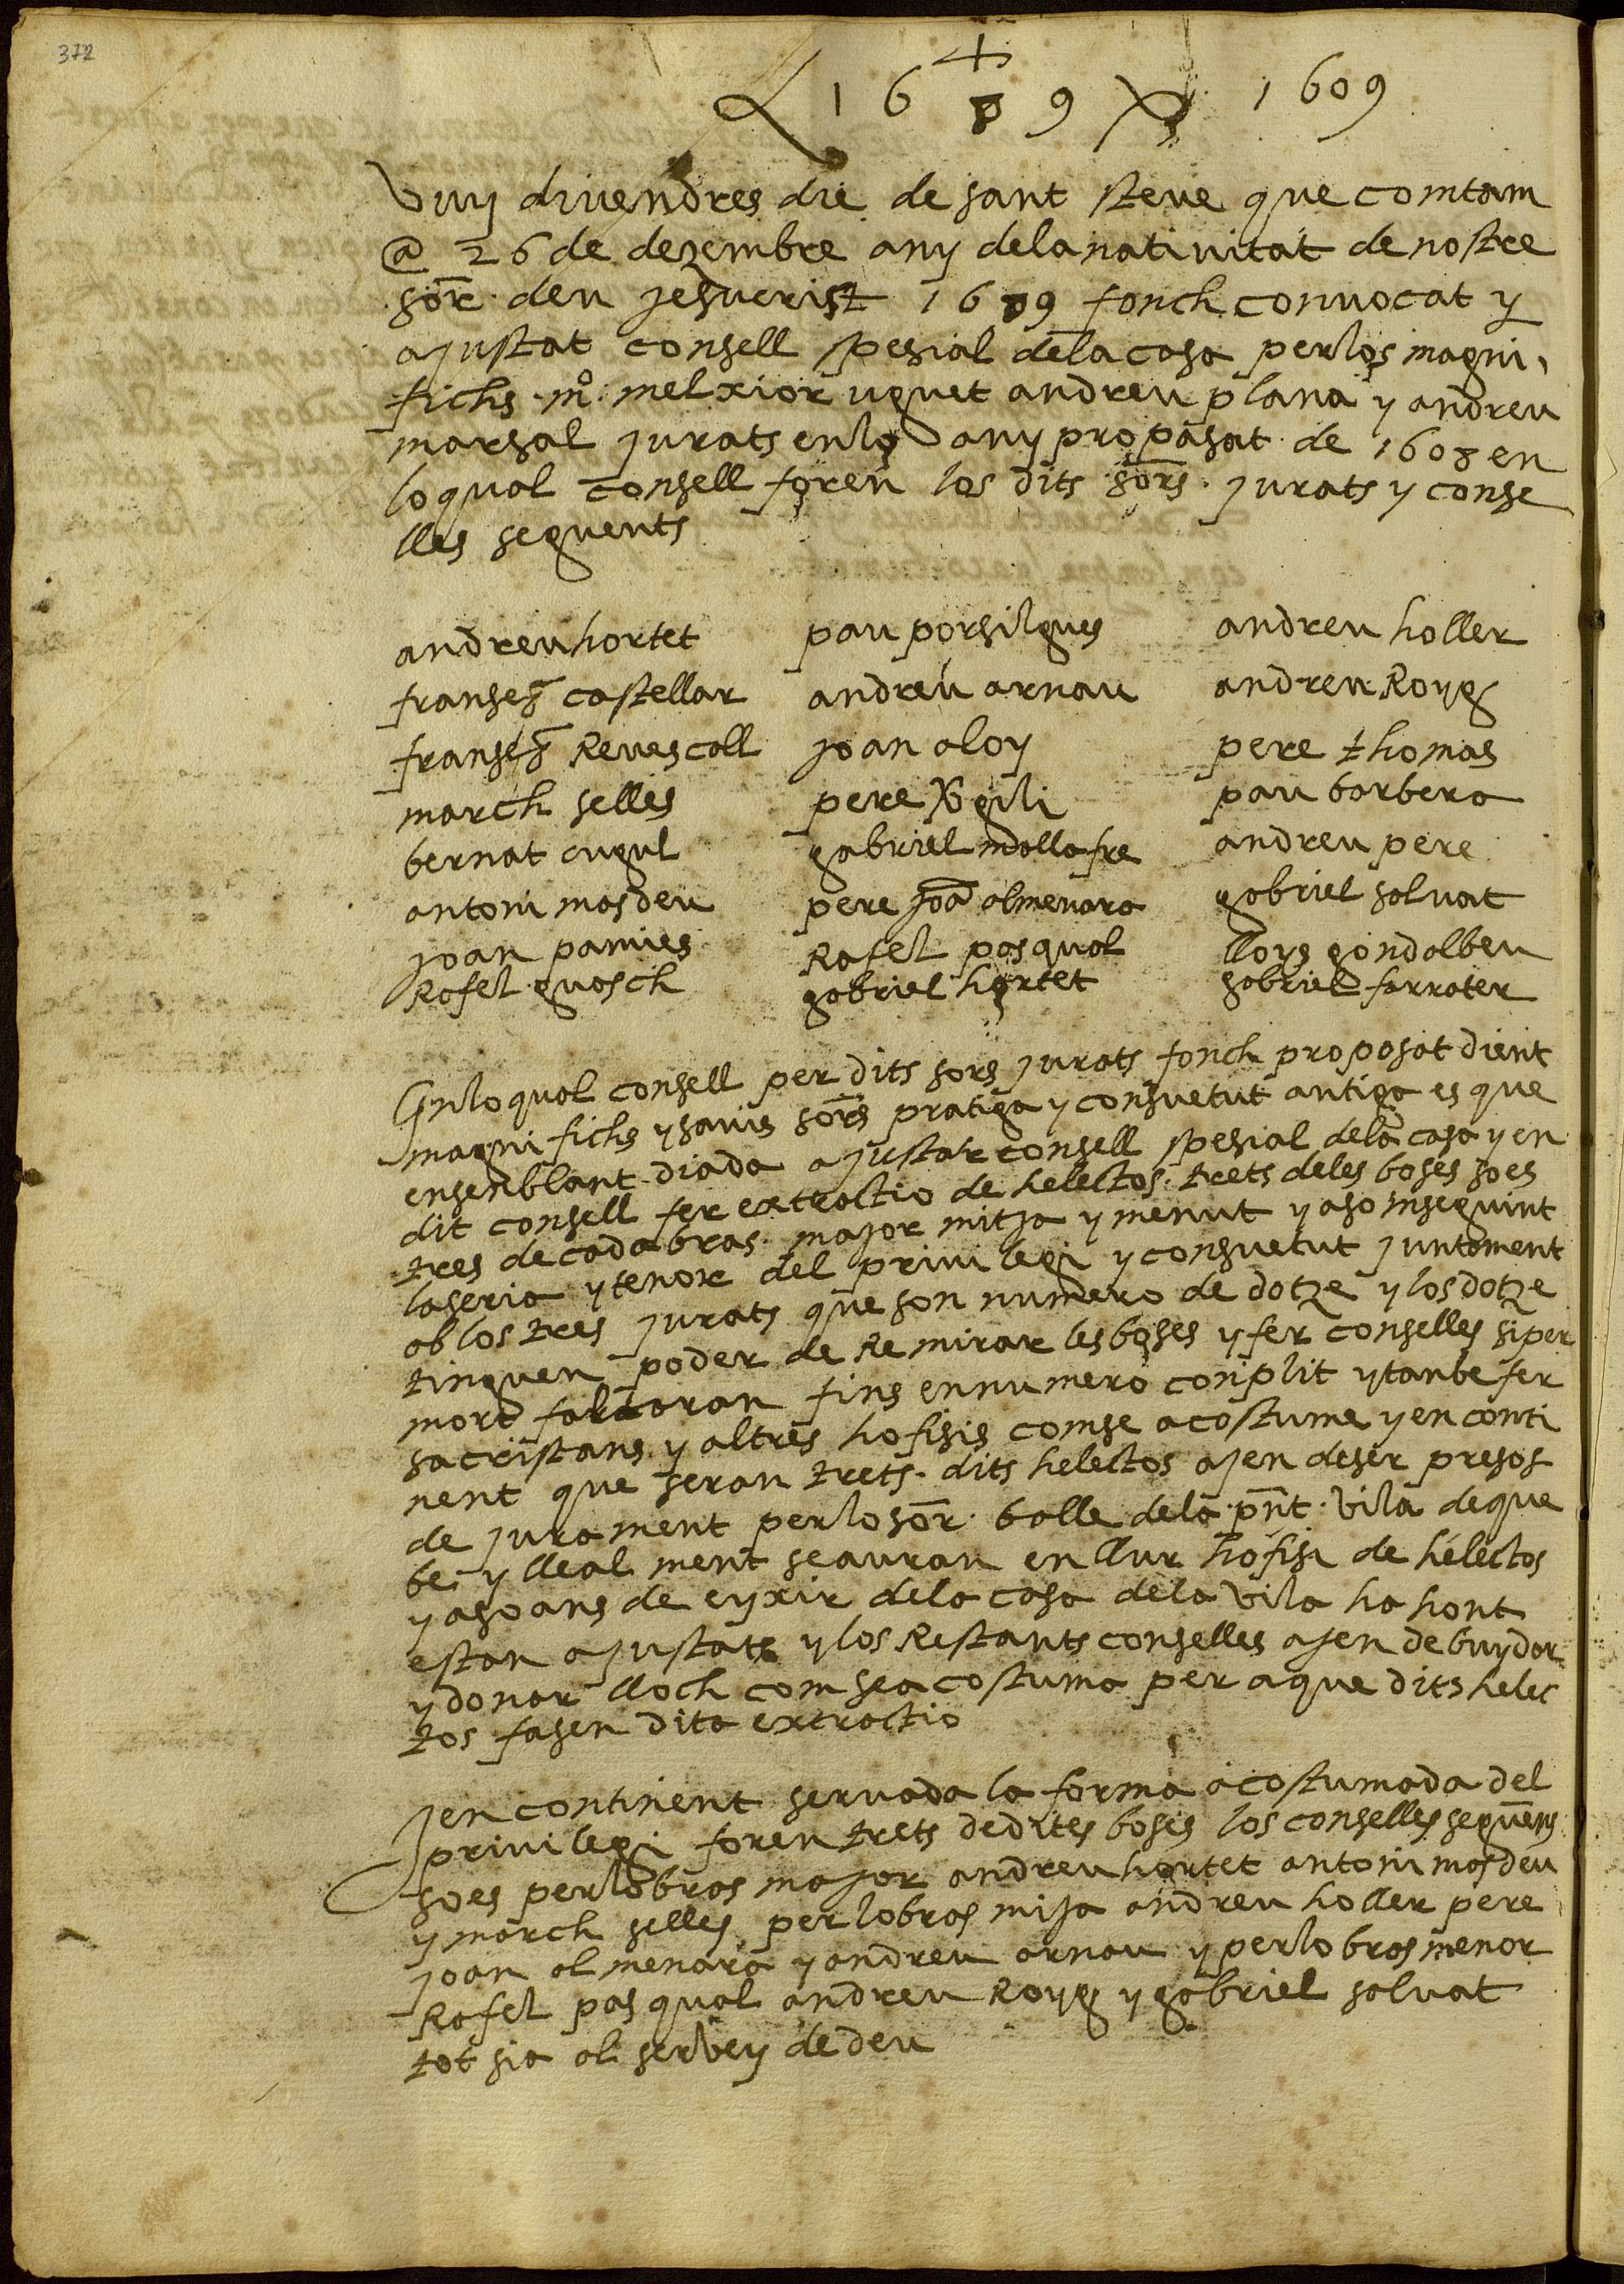 372
1609 1609
Vuy divendres die de sant steve que comtam
@ 26 de dezembre any dela nativitat de nostre
sor. deu jesucrist 1609 fonch convocat y
ajustat consell spesial dela casa perlos magni
fichs mo. melxior uguet andreu plana y andreu
marsal jurats enlo any propasat de 1608 en
loqual consell foren los dits sors. jurats y conse
lles seguents
andreu hortet pau porsilgues andreu holler
fransesq castellar andreu arnau andreu Royg
fransesq Revascoll joan aloy pere thomas
march selles pere gili pau barbera
bernat cugul gabriel mallafre andreu pere
antoni masdeu pere joa almenara gabriel salvat
joan pamies Rafel pasqual lloys gondalbeu
Rafel guasch gabriel hortet gabriel farrater
Enloqual consell per dits sors jurats fonch proposat dient
magnifichs y savis sors pratiga y consuetut antiga es que
ensenblant diada ajustar consell spesial dela casa y en
dit consell fer extractio de helectos. trets deles boses soes
tres de cada bras. major mitja y menut y aso inseguint
laseria y tenor del privilegi y consuetut juntament
ab los tres jurats que son numero de dotze y los dotze
tinguen poder de Remirar les boses y fer conselles si per
mort faltaran fins ennumero conplit y tanbe fer
sacristans y altres hofisis comse acostuma y en conti
nent que seran trets. dits helectos ajen deser presos
de jurament perlo sor. balle dela pnt. vila de que
be y lleal ment seauran en llur hofisi de helectos
y aso ans de eyxir dela casa dela vila ha hont
estan ajustats y los Restants conselles ajen de buydar
y donar lloch com sea costuma per aque dits helec
tos fasen dita extractio
Jen continent servada la forma acostumada del
privilegi foren trets de dites boses los conselles seguens
soes perlobras major andreu hortet antoni masdeu
y march selles per lobras mija andreu holler pere
joan almenara y andreu arnau y perlo bras menor
Rafel pasqual andreu Royg y gabriel salvat
tot sia al servey de deu